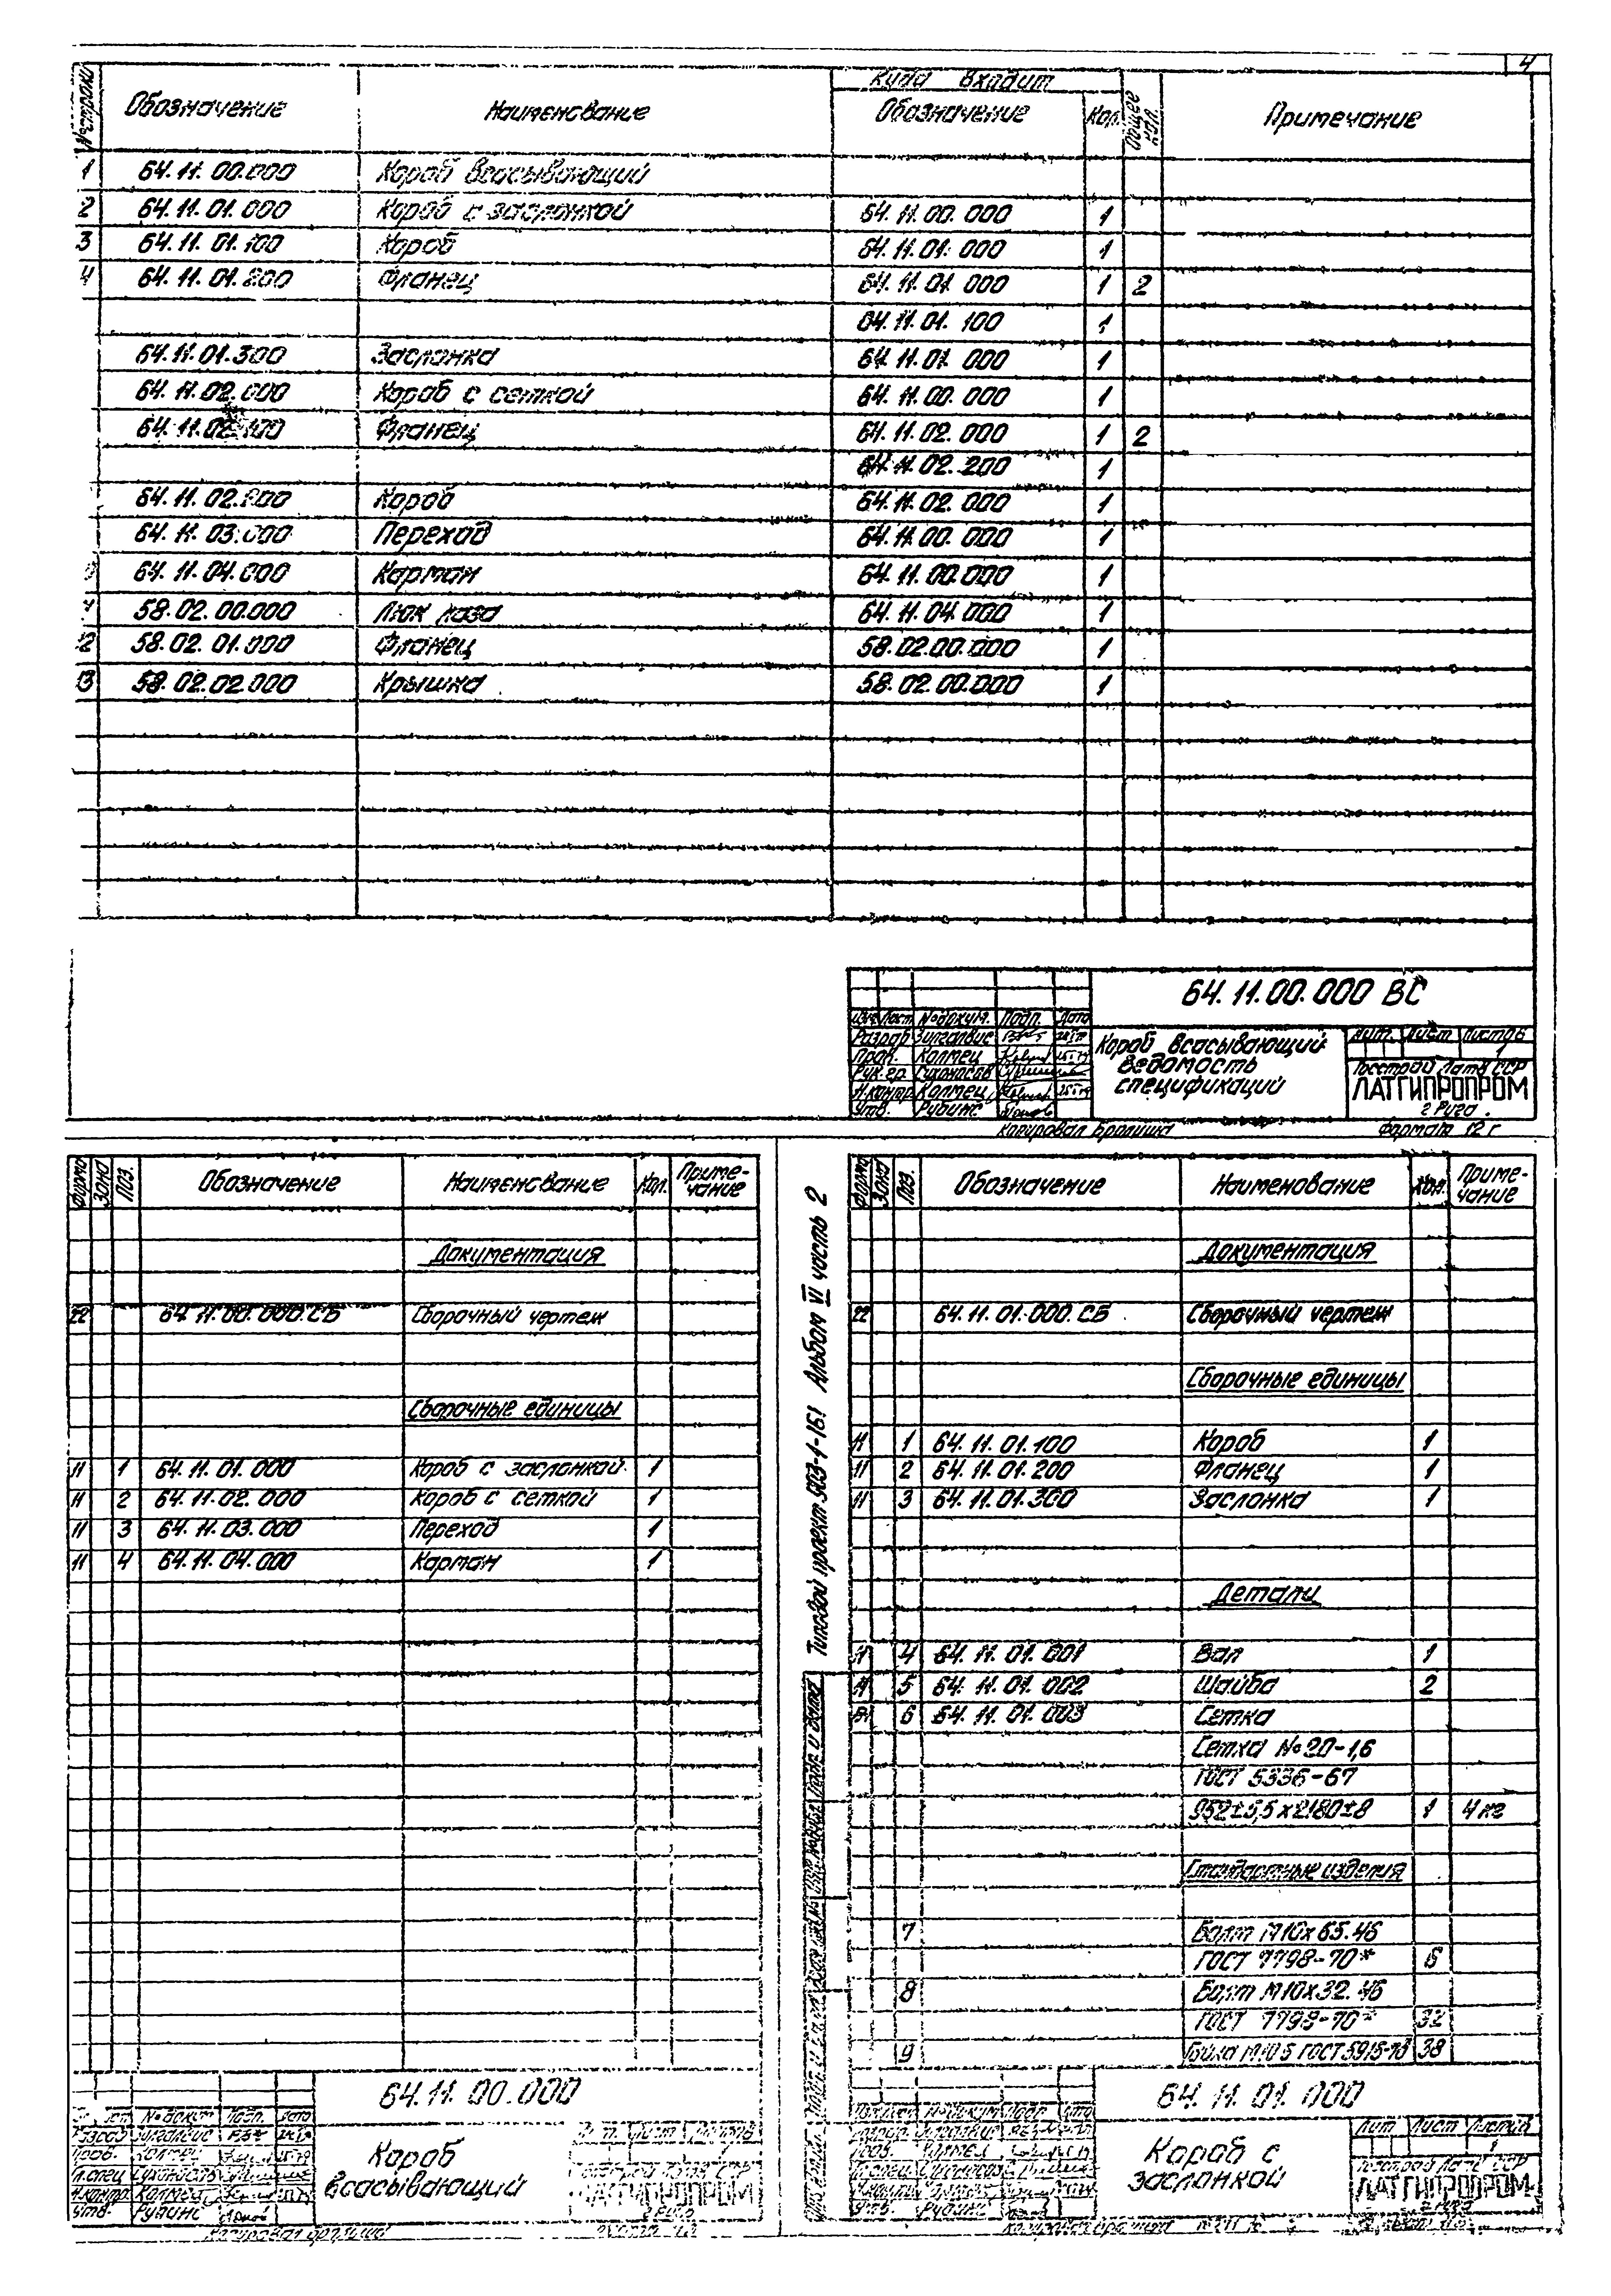 4
№ строки Обозначение Наименование Куда входит Общее кол. Примечание
Обозначение Кол.
1 64.11.00.000 Короб всасывающий
2 64.11.01.000 Короб с заслонкой 64.11.00.000 1
3 64.11.01.100 Короб 64.11.01.000 1
4 64.11.01.200 Фланец 64.11.01.000 1 2
64.11.01.100 1
64.11.01.300 Заслонка 64.11.01.000 1
64.11.02.000 Короб с сеткой 64.11.00.000 1
64.11.02.100 Фланец 64.11.02.000 1 2
64.11.02.200 1
64.11.02.200 Короб 64.11.02.000 1
64.11.03.000 Переход 64.11.00.000 1
64.11.04.000 Карман 64.11.00.000 1
58.02.00.000 Люк лаза 64.11.04.000 1
12 58.02.01.000 Фланец 58.02.00.000 1
13 58.02.02.000 Крышка 58.02.00.000 1
64.11.00.000 ВС
Изм. Лист № докум. Подп. Дата
Разраб Зиргалвис
Пров. Калмец
Рук. гр. Сухоносов
Н.контр. Калмец
Утв. Рубинс
Короб всасывающий
Ведомость
спецификаций
Лит. Лист Листов
1
Госстрой Латв ССР
ЛАТГИПРОПРОМ
г. Рига
Копировал Формат 12г
Форма Зона Поз. Обозначение Наименование Кол. Приме-
чание
Документация
22 64.11.00.000.СБ Сборочный чертеж
Сборочные единицы
11 1 64.11.01.000 Короб с заслонкой 1
11 2 64.11.02.000 Короб с сеткой 1
11 3 64.11.03.000 Переход 1
11 4 64.11.04.000 Карман 1
64.11.00.000
№ докум Подп. Дата
Калмец
Сухоносов
Н.контр Калмец
Утв. Рубинс
Короб
всасывающий
Лист
ЛАТГИПРОПРОМ
Типовой проект 903-1-161 Альбом VI часть 2
Подп. и дата
Форма Зона Поз. Обозначение Наименование Кол. Приме-
чание
Документация
22 64.11.01.000.СБ Сборочный чертеж
Сборочные единицы
11 1 64.11.01.100 Короб 1
11 2 64.11.01.200 Фланец 1
11 3 64.11.01.300 Заслонка 1
Детали
11 4 64.11.01.001 Вал 1
11 5 64.11.01.002 Шайба 2
6 64.11.01.003 Сетка
Сетка №20-1,6
ГОСТ 5336-67
952±5,5х2180±8 1 4 кг
Стандартные изделия
7 Болт М10х65.46
ГОСТ 7798-70* 6
8 Болт М10х32.46
ГОСТ 7798-70* 32
9 Гайка М10.5 ГОСТ 5915-70* 38
64.11.01.000
Утв. Рубинс
Короб с
заслонкой
Лит Лист Листов
1
Госстрой Латв ССР
ЛАТГИПРОПРОМ
г. Рига